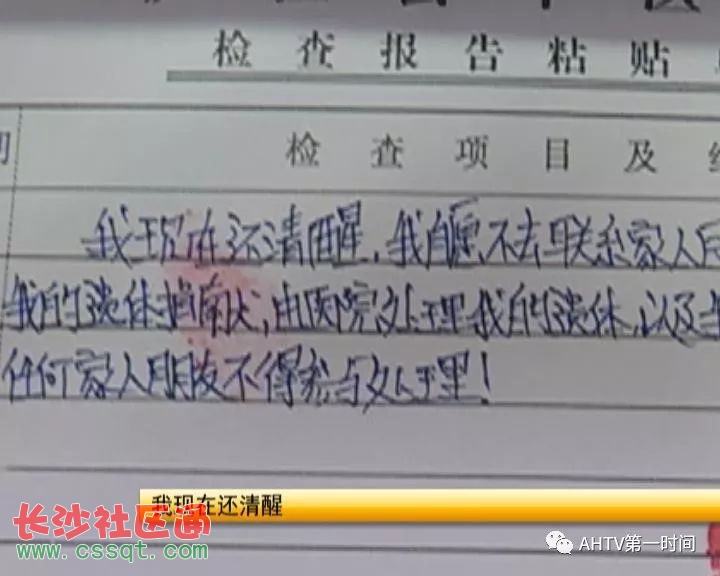 检查报告粘贴
检查项目及
我现在还清醒,我自愿不去联系家人
我的遗体捐献,由医院处理我的遗体,以及
任何家人朋友不得参与处理!
我现在还清醒
长沙社区通
www.cssqt.com
AHTV第一时间